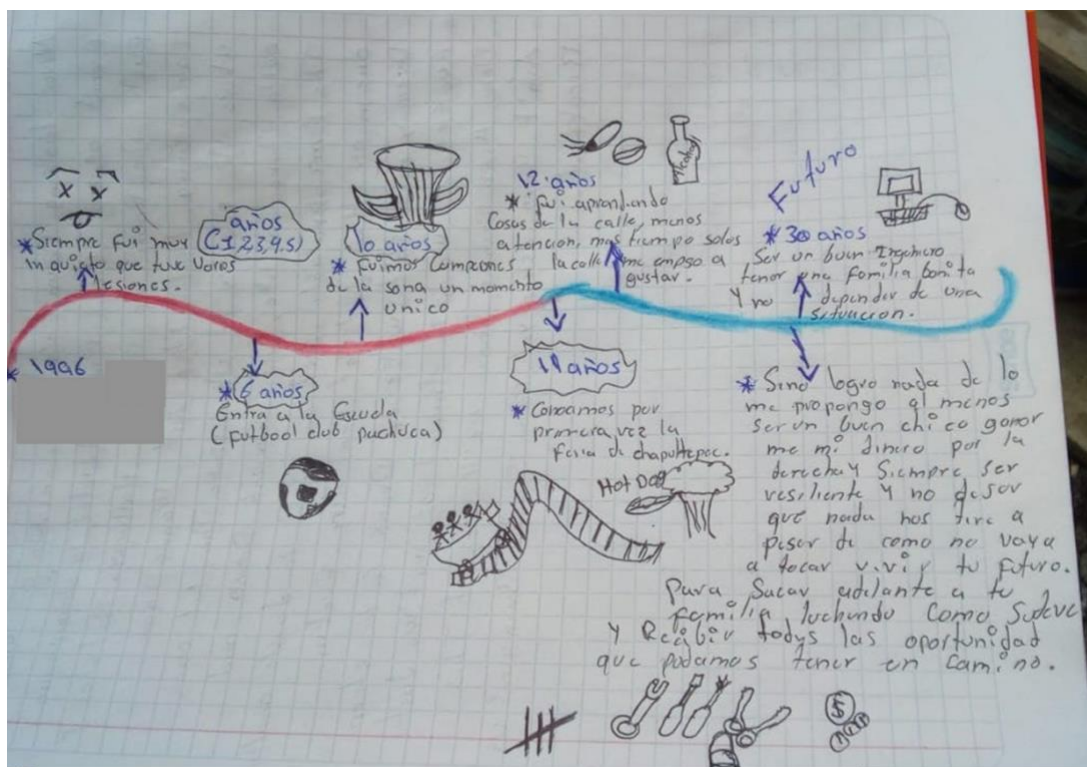 1996
*Siempre fui muy
inquieto que tuve varios
lesiones.
años
(1,2,3,4,5)
*6 años
Entra a la Escuela
(futbool club pachuca)
10 años
* fuimos campeones
de la sona un momento
unico
12 años
* fui aprendiendo
Cosas de la calle, menos
atencion, mas tiempo solos
la calle me empso a
gustar.
Alcohol
años
* Conoamos por
primera vez la
feria de chapultepec.
Hot Dog
Futuro
* 30 años
Ser un buen Ingeniero
tener una familia bonita
Y no depender de una
situacion.
* Sino logro nada de lo
me propongo al menos
ser un buen chico ganar
me mi dinero por la
derecha y Siempre ser
resiliente Y no
que nada nos tire a
pesar de como no vaya
a tocar vivir tu futuro.
Para Sacar adelante a tu
familia luchando Como Sudeve
Y Recibir todas las oportunidad
que podamos tener en camino.
$